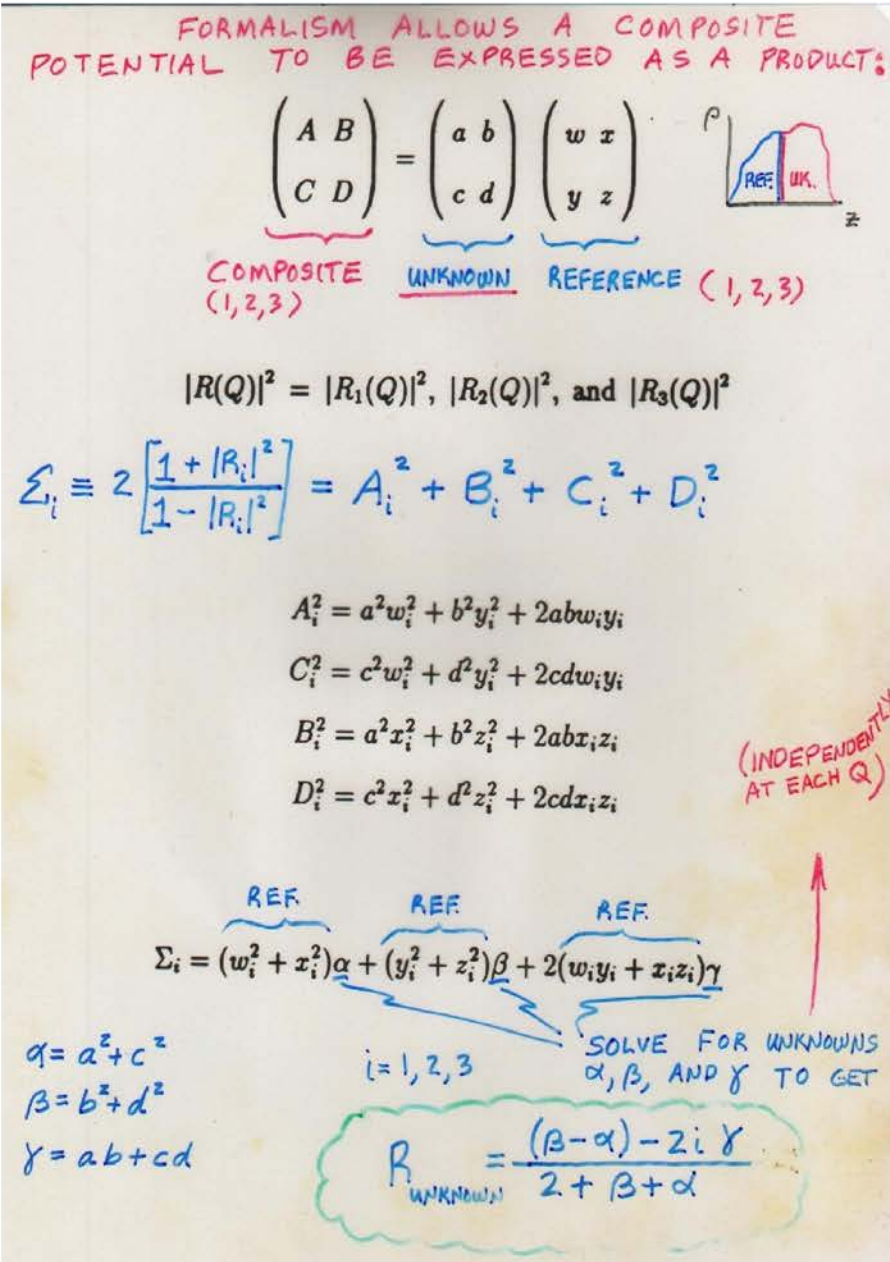 FORMALISM ALLOWS A COMPOSITE
POTENTIAL TO BE EXPRESSED AS A PRODUCT:
(A B
C D) = (a b
c d) (w x
y z)
ρ
REF. UK.
z
COMPOSITE
(1,2,3)
UNKNOWN
REFERENCE (1,2,3)
|R(Q)|² = |R₁(Q)|², |R₂(Q)|², and |R₃(Q)|²
Σᵢ ≡ 2 [1 + |Rᵢ|² / 1 − |Rᵢ|²] = Aᵢ² + Bᵢ² + Cᵢ² + Dᵢ²
Aᵢ² = a²wᵢ² + b²yᵢ² + 2abwᵢyᵢ
Cᵢ² = c²wᵢ² + d²yᵢ² + 2cdwᵢyᵢ
Bᵢ² = a²xᵢ² + b²zᵢ² + 2abxᵢzᵢ
Dᵢ² = c²xᵢ² + d²zᵢ² + 2cdxᵢzᵢ
(INDEPENDENTLY
AT EACH Q)
REF. REF. REF.
Σᵢ = (wᵢ² + xᵢ²)α + (yᵢ² + zᵢ²)β + 2(wᵢyᵢ + xᵢzᵢ)γ
α = a² + c²
β = b² + d²
γ = ab + cd
i = 1, 2, 3
SOLVE FOR UNKNOWNS
α, β, AND γ TO GET
R UNKNOWN = (β−α) − 2iγ / 2 + β + α